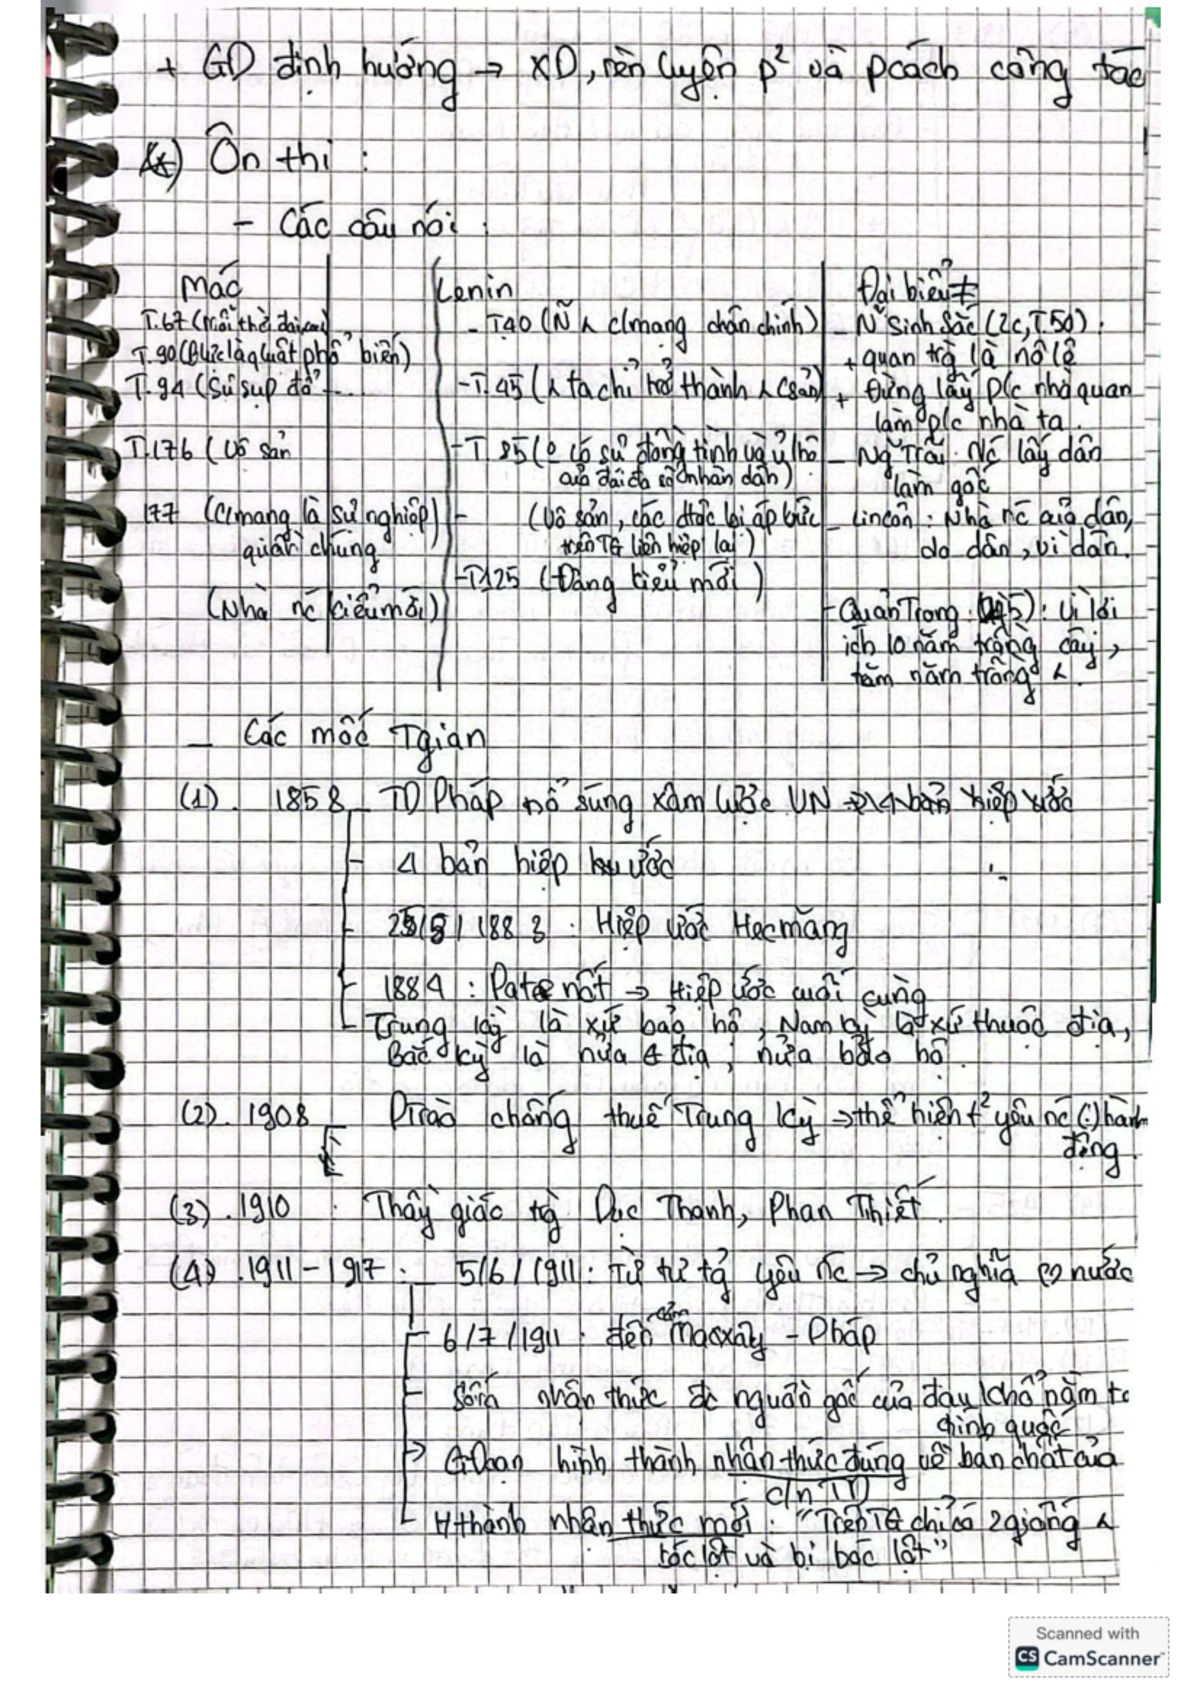 + GD định hướng → XD, rèn luyện p² và pcách công tác
(*) Ôn thi :
- Các câu nói :
Mác
T.67 (Mỗi thờ đại
T.90 (Bức là quật phổ biến)
T.94 (Sự sụp đổ ...
T.176 (Vô sản
177 (C/mạng là sự nghiệp)
quần chúng
(Nhà nc kiểu mới)
Lenin
- T40 (Ñ ʎ c/mạng chân chính)
- T.45 (ʎ ta chỉ trở thành ʎ Csản)
- T.85 (o có sự đồng tình và ủ hộ
của đại đa số nhân dân)
- (Vô sản, các dtộc bị áp bức
trên TG liên hiệp lại)
- T125 (Đảng kiểu mới)
Đại biểu ≠
- Ñ Sinh Sắc (2c, T.50) :
+ quan trg là nô lệ
+ Đừng lấy p/c nhà quan
làm p/c nhà ta.
- Ng Trãi : Nc lấy dân
làm gốc
- Lincôn : Nhà nc của dân,
do dân, vì dân.
- Quản Trọng : : Vì lợi
ích 10 năm trồng cây,
trăm năm trồng ʎ.
- Các mốc Tgian
(1). 1858 - TD Pháp nổ súng xâm lược VN
- 4 bản hiệp ước
- 25/8/1883 : Hiệp ước Hecmăng
- 1884 : Patơnốt → Hiệp ước cuối cùng
- Trung kỳ là xứ bảo hộ, Nam kỳ là xứ thuộc địa,
Bắc kỳ là nửa t địa, nửa bảo hộ.
(2). 1908 Ptrào chống thuế Trung Kỳ → thể hiện t² yêu nc (:) hành
động.
(3). 1910 : Thầy giáo tg Dục Thanh, Phan Thiết
(4). 1911 - 1917 : - 5/6/1911 : Từ tư tg yêu nc → chủ nghĩa nước
- 6/7/1911 : đến cảng Macxây - Pháp
- nhận thức đc nguồn gốc của đau khổ nằm tạ
chính quốc
→ GĐoạn hình thành nhận thức đúng về bản chất của
c/n TD
- Hthành nhận thức mới : "Trên TG chỉ có 2 giống ʎ
bóc lột và bị bóc lột"
Scanned with
CS CamScanner